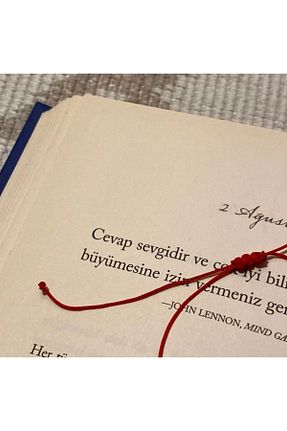 2 Ağus
Cevap sevgidir ve
büyümesine izin vermeniz ger
—JOHN LENNON, MIND GA
Her